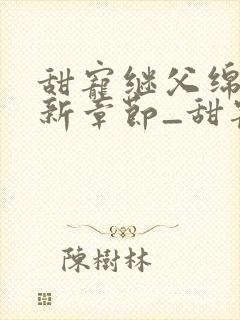 甜寵继父绵
新章節_甜
陳樹林